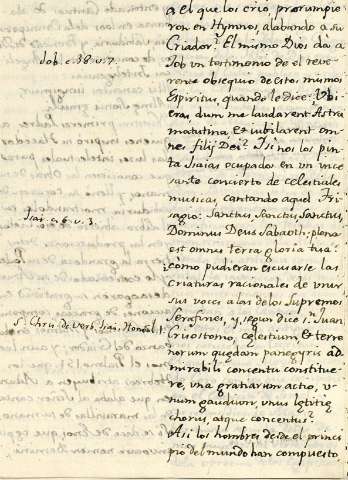 a el que los crió prorumpie
ron en Hymnos, alabando a su
Criador? El mismo Dios dá a
Job. c. 38. v. 7.
Job un testimonio de el reve
rente obsequio de estos mismos
Espiritus, quando le dice: Ubi
eras, dum me laudarent Astra
matutina, et iubilarent om
nes filij Dei? I si nos los pin
ta Isaias ocupados en un ince
sante concierto de celestiales
musicas, cantando aquel Tri
Isai. c. 6. v. 3.
sagio: Sanctus, Sanctus, Sanctus,
Dominus Deus Sabaoth, plena
est omnis terra gloria tua:
còmo pudieran escusarse las
criaturas racionales de unir
sus voces a las de los Supremos
S. Chris. de Verb. Isai. Homil. 1.
Serafines, y, segun dice S. Juan
Crysostomo, celestium, et terre
norum quędam panegyris ad
mirabili concentu constitue
re, una gratiarum actio, u
num gaudium, unus lętitię
chorus, atque concentus?
Asi los hombres desde el princi
pio del mundo han compuesto